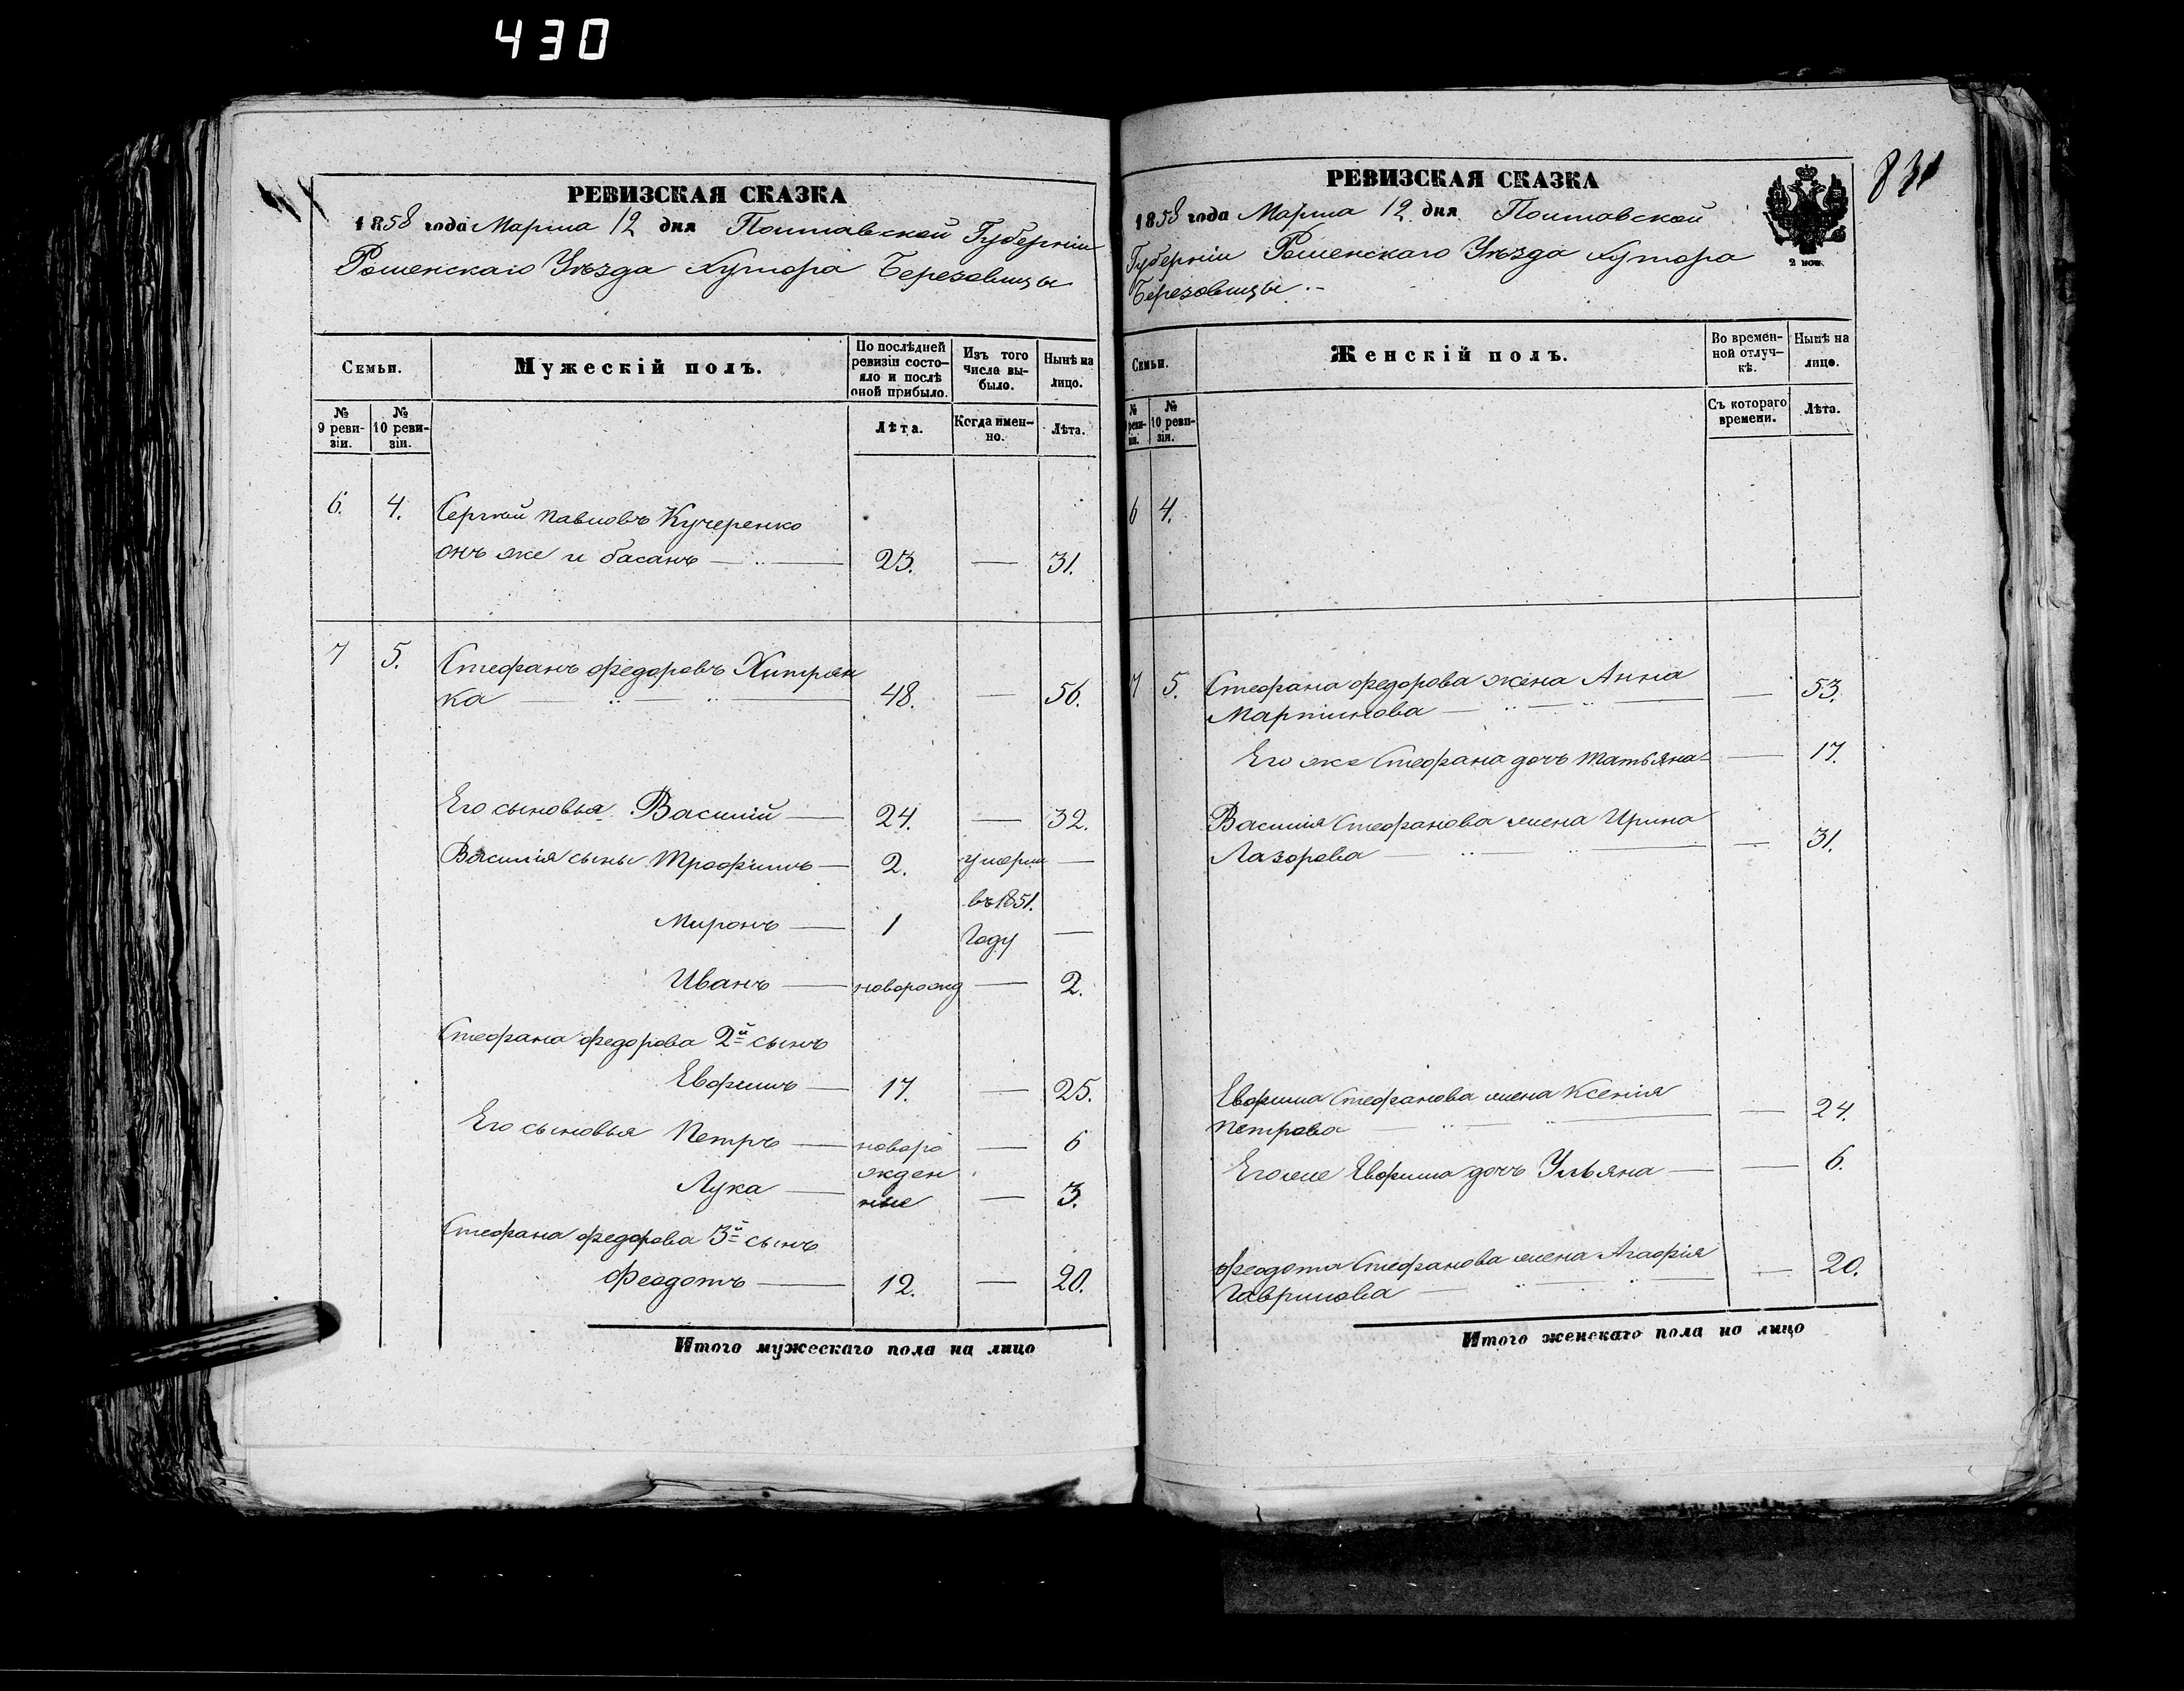 430
РЕВИЗСКАЯ СКАЗКА
1858 года Марта 12 дня Полтавской Губерніи
Роменскаго Уѣзда Хутора Березовицы
Семьи.
Мужескій полъ.
По послѣдней ревизіи состояло и послѣ оной прибыло.
Изъ того числа выбыло.
Нынѣ на лицо.
№ 9 ревизіи.
№ 10 ревизіи.
Лѣта.
Когда именно.
Лѣта.
6. 4. Сергѣй Павловъ Кучеренко
онъ же и басанъ — 23. — 31.
7 5. Стефанъ Федоровъ Хитрен
ка — 48. — 56.
Его сыновья Василій — 24. — 32.
Василія сыны Трофимъ — 2. умерли —
въ 1851.
Миронъ — 1 Году —
Иванъ — наворожд — 2.
Стефана Федорова 2й сынъ
Евфимъ — 17. — 25.
Его сыновья Петръ — наворо — 6
жден
Лука — ные — 3.
Стефана Федорова 3й сынъ
Феодотъ — 12. — 20.
Итого мужескаго пола на лицо
РЕВИЗСКАЯ СКАЗКА
831
1858 года Марта 12 дня Полтавской
Губерніи Роменскаго Уѣзда Хутора
Березовицы.
2 коп.
Семьи.
Женскій полъ.
Во временной отлучкѣ.
Нынѣ на лицо.
№ реви-
зіи.
№ 10 ревизіи.
Съ котораго времени.
Лѣта.
6 4.
7 5. Стефана Федорова жена Анна
Мартинова — — 53.
Его же Стефана дочь Татьяна — — 17.
Василія Стефанова жена Ирина
Лазорева — — 31.
Евфима Стефанова жена Ксенія
Петрова — — 24.
Его же Евфима дочь Ульяна — — 6.
Феодота Стефанова жена Агафія
Гаврилова — — 20.
Итого женскаго пола на лицо